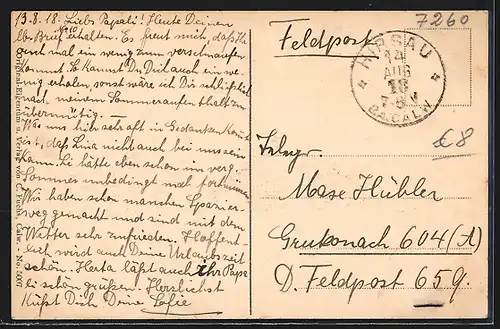 13.8.18. Liebs Papali! Heute Deinen
lb. Brief erhalten. Es freut mich, daß Ihr
auch mal ein wenig zum verschnaufen
kommt. So kannst Du Dich auch ein we-
nig erholen, sonst wäre ich Dir schließlich
nach meinem Sommeraufenthalt zu
übermütig.
Was uns hier sehr oft in Gedanken kommt
ist, daß Lina nicht auch bei uns sein
kann. Sie hätte eben schon im verg.
Sommer unbedingt mal fort müssen
Wir haben schon manchen Spazier-
weg gemacht und sind mit dem
Wetter sehr zufrieden. Hoffent-
lich wird auch Deine Urlaubszeit
schön. Herta läßt auch ihr Papa-
li schön grüßen. Herzlichst
küßt Dich Deine Sofie
Original-Eigentum u. Verlag von C. Fuchs, Calw. No.
7260
Feldpost
HIRSAU
14
AUG
18
7-8 V
OA. CALW
€8
Telegr.
Max Hübler
Grukonach 604 (A)
D. Feldpost 659.